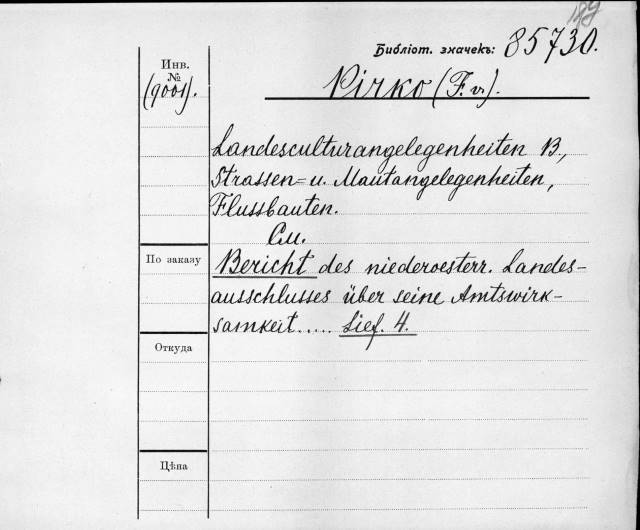 Библіот. значекъ: 85730.
Инв.
№
(9001).
Pirko (F. v.).
Landesculturangelegenheiten B,
Strassen= u. Mautangelegenheiten,
Flussbauten.
См.
По заказу
Bericht des niederoesterr. Landes-
ausschlusses über seine Amtswirk-
samkeit..... Lief. 4.
Откуда
Цѣна